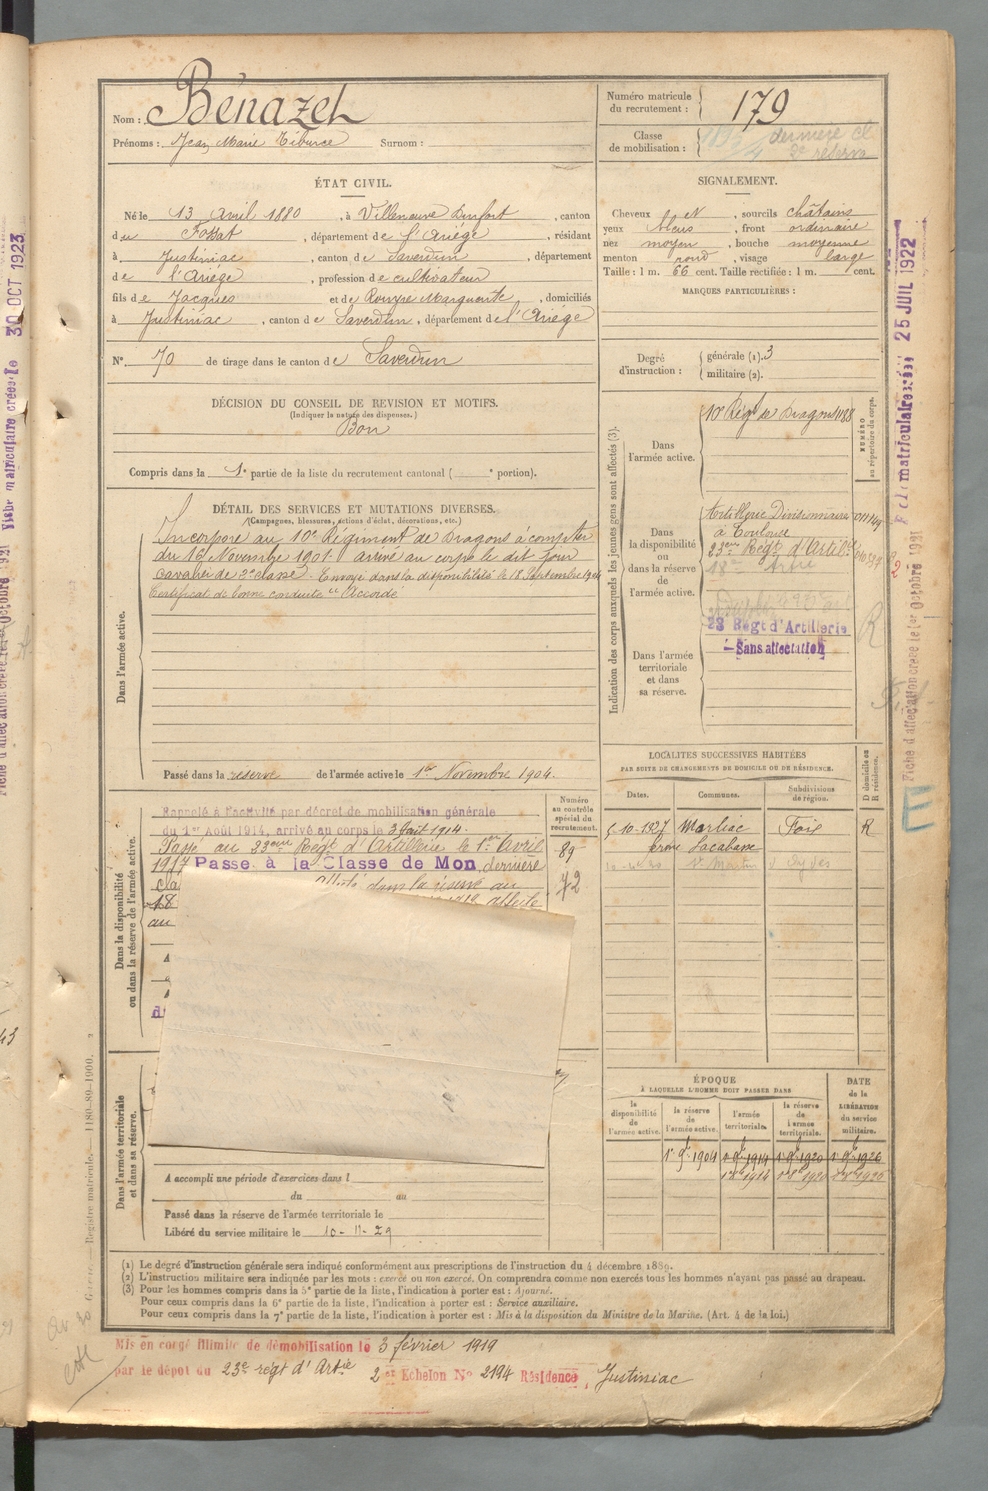 Nom : Bénazet
Prénoms : Jean Marie Tiburce Surnom :
Numéro matricule du recrutement : 179
Classe de mobilisation : dernière cl
2e réserve
ÉTAT CIVIL.
Né le 13 Avril 1880, à Villeneuve Durfort, canton
du Fossat, département de l'Ariège, résidant
à Justiniac, canton de Saverdun, département
de l'Ariège, profession de cultivateur
fils de Jacques et de Rouyre Marguerite, domiciliés
à Justiniac, canton de Saverdun, département de l'Ariège
N° 70 de tirage dans le canton de Saverdun
SIGNALEMENT.
Cheveux et, sourcils châtains
yeux bleus, front ordinaire
nez moyen, bouche moyenne
menton rond, visage large
Taille : 1 m. 66 cent. Taille rectifiée : 1 m. cent.
MARQUES PARTICULIÈRES :
Degré d'instruction : générale (1). 3
militaire (2).
DÉCISION DU CONSEIL DE REVISION ET MOTIFS.
(Indiquer la nature des dispenses.)
Bon
Compris dans la 1e partie de la liste du recrutement cantonal ( e portion).
DÉTAIL DES SERVICES ET MUTATIONS DIVERSES.
(Campagnes, blessures, actions d'éclat, décorations, etc.)
Dans l'armée active.
Incorporé au 10e Régiment de Dragons à compter
du 16 Novembre 1901. arrivé au corps le dit jour
cavalier de 2e classe. Envoyé dans la disponibilité le 18 Septembre 1904
Certificat de bonne conduite "Accordé"
Passé dans la réserve de l'armée active le 1er Novembre 1904.
Indication des corps auxquels les jeunes gens sont affectés (3).
Dans l'armée active.
10e Régt de Dragons 1188
NUMÉRO au répertoire du corps.
Dans la disponibilité ou dans la réserve de l'armée active.
Artillerie Divisionnaire
à Toulouse
23ème Régt d'Artie
18e Artie
23 Régt d'Artillerie
Sans affectation
Dans l'armée territoriale et dans sa réserve.
LOCALITÉS SUCCESSIVES HABITÉES
PAR SUITE DE CHANGEMENTS DE DOMICILE OU DE RÉSIDENCE.
Dates. Communes. Subdivisions de région. D domicile ou R résidence.
5-10-1927 Marliac Foix R
Lacabane
St Martin
Dans la disponibilité ou dans la réserve de l'armée active.
Numéro au contrôle spécial du recrutement.
Rappelé à l'activité par décret de mobilisation générale
du 1er Août 1914, arrivé au corps le 3 Août 1914.
Passé au 23ème Régt d'Artillerie le 1er Avril 89
1917 Passé à la Classe de Mon dernière
dans la réserve au 72
18
au
ÉPOQUE
À LAQUELLE L'HOMME DOIT PASSER DANS
DATE de la LIBÉRATION du service militaire.
la disponibilité de l'armée active. la réserve de l'armée active. l'armée territoriale. la réserve de l'armée territoriale.
1er 9bre 1904 1er 9bre 1914 1er 9bre 1920 1er 9bre 1926
1er 8bre 1914 1er 8bre 1920 1er 8bre 1926
Dans l'armée territoriale et dans sa réserve.
A accompli une période d'exercices dans l
du au
Passé dans la réserve de l'armée territoriale le
Libéré du service militaire le 10-11-29
(1) Le degré d'instruction générale sera indiqué conformément aux prescriptions de l'instruction du 4 décembre 1889.
(2) L'instruction militaire sera indiquée par les mots : exercé ou non exercé. On comprendra comme non exercés tous les hommes n'ayant pas passé au drapeau.
(3) Pour les hommes compris dans la 5e partie de la liste, l'indication à porter est : Ajourné.
Pour ceux compris dans la 6e partie de la liste, l'indication à porter est : Service auxiliaire.
Pour ceux compris dans la 7e partie de la liste, l'indication à porter est : Mis à la disposition du Ministre de la Marine. (Art. 4 de la loi.)
Mis en congé illimité de démobilisation le 3 février 1919
par le dépôt du 23e régt d'Artie 2e Echelon N° 2194 Résidence, Justiniac
Registre matricule. — 1180-89-1900.
Fiche matriculaire créée le 30 OCT 1923
Fiche d'affectation créée le 1er Octobre 1921
matriculaire créée 25 JUIL 1922
Fiche d'affectation créée le 1er Octobre 1921
R
E